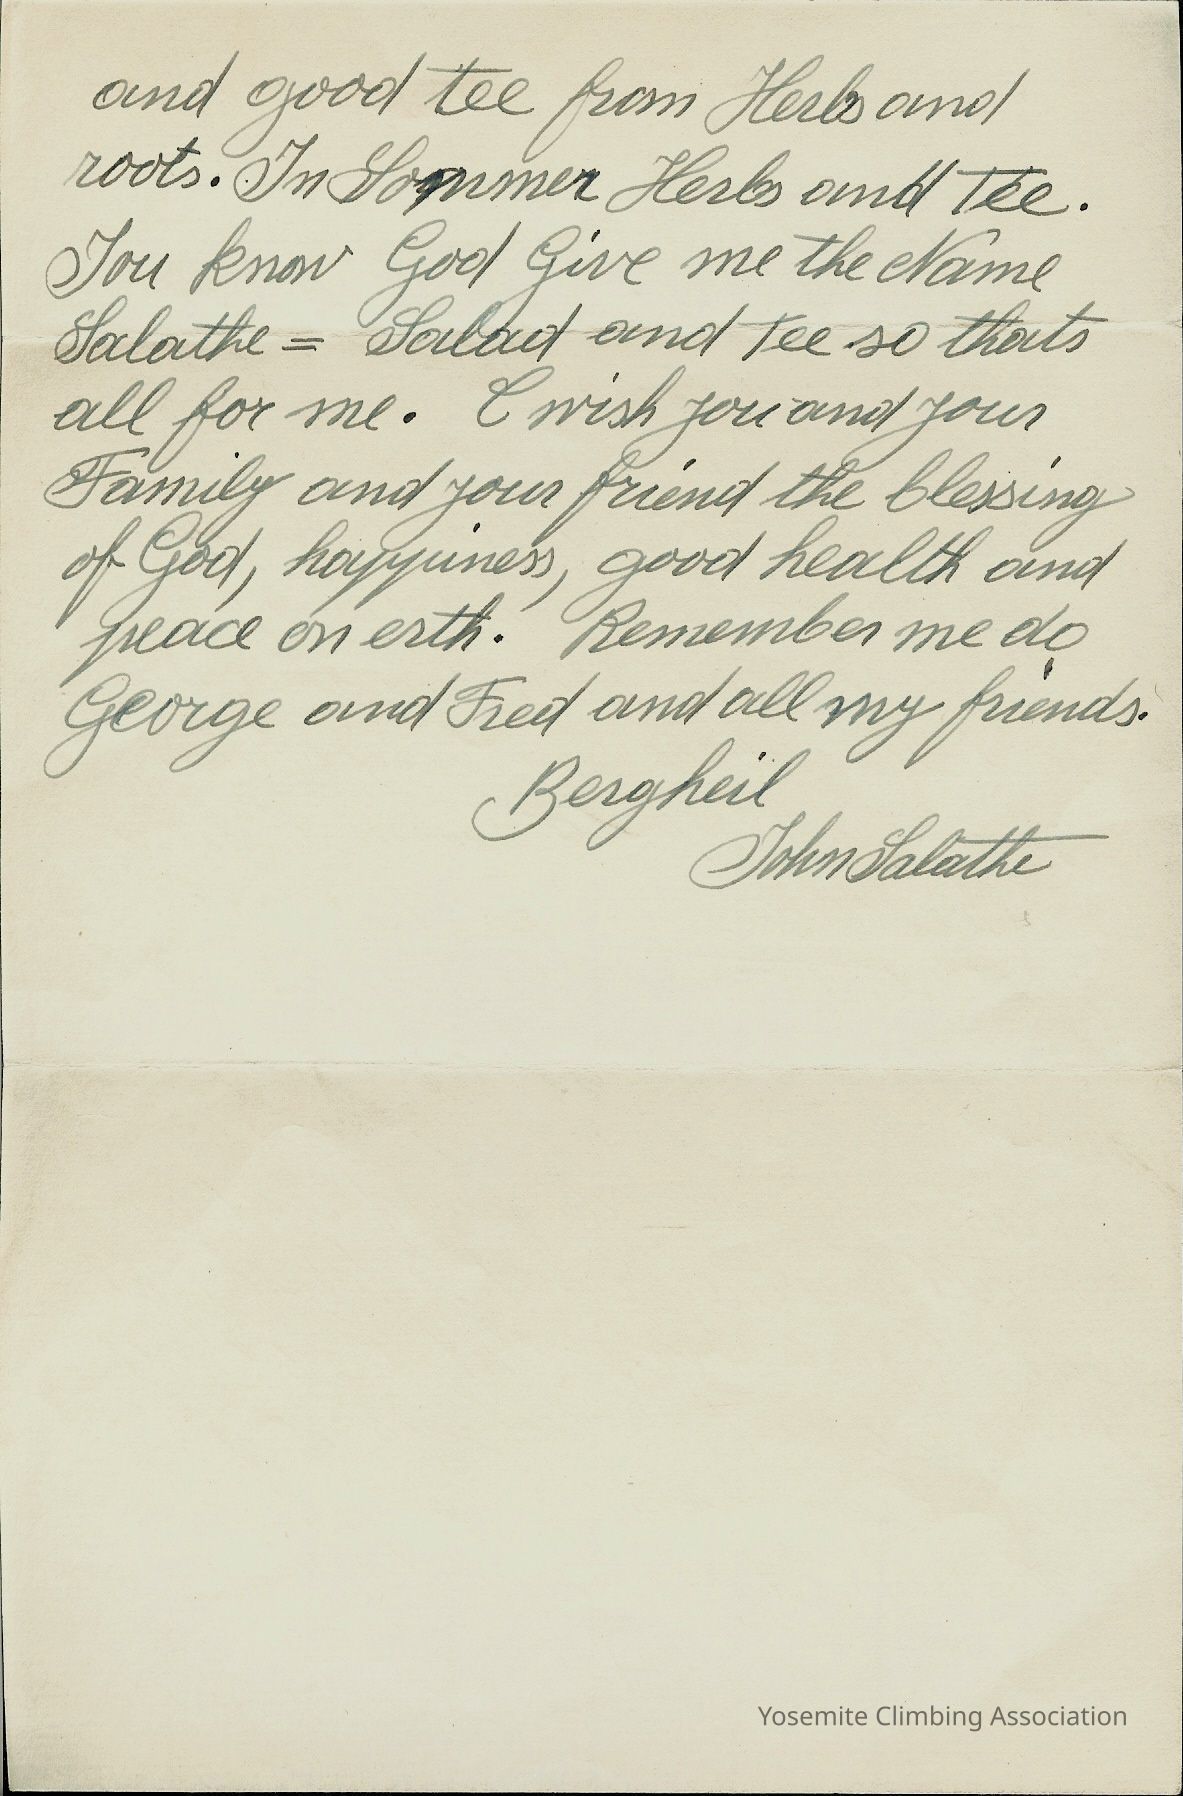 and good tee from Herbs and
roots. In Sommer Herbs and Tee.
You know God Give me the Name
Salathe = Salad and Tee so thats
all for me. I wish you and your
Family and your friend the blessing
of God, happiness, good health and
peace on erth. Remember me do
George and Fred and all my friends.
Bergheil
John Salathe
Yosemite Climbing Association